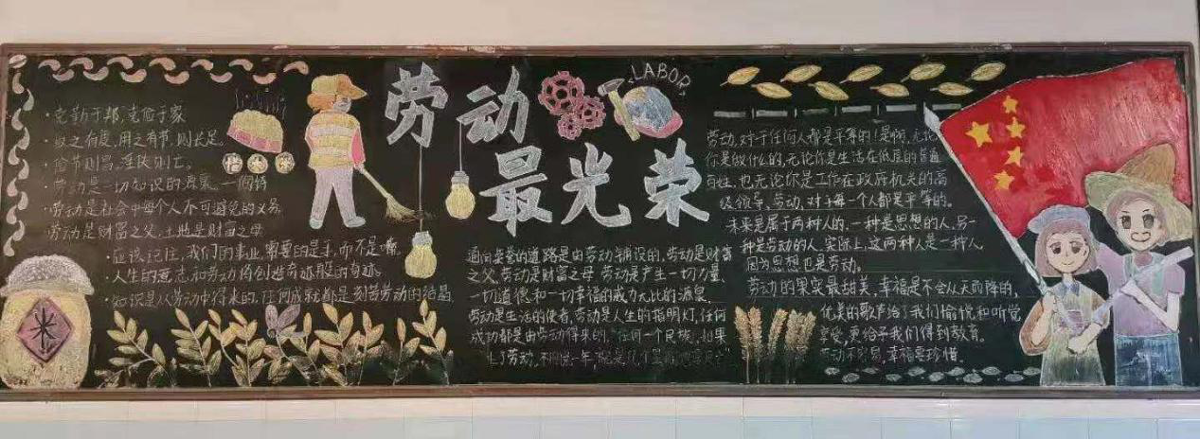 克勤于邦,克俭于家
取之有度,用之有节,则长足
俭节则昌,淫佚则亡。
劳动是一切知识的源泉。
劳动是社会中每个人不可避免的义务
劳动是财富之父,土地是财富之母
应该记住,我们的事业,需要的是手,而不是嘴
人生的意志和劳动将创造奇迹般的奇迹。
知识是从劳动中得来的,任何成就都是刻苦劳动的结晶
劳动
最光荣
LABOR
通向的道路是由劳动铺设的,劳动是财富
之父,劳动是财富之母 劳动是产生一切力量、
一切道德和一切幸福的威力无比的源泉
劳动是生活的使者,劳动是人生的指明灯,任何
成功都是由劳动得来的,"任何一个民族,如果
了劳动,不用说一年,就是几个星期
劳动,对于任何人都是平等的!是啊,无论
你是做什么的,无论你是生活在低层的普通
百姓,也无论你是工作在政府机关的高
级领导,劳动,对于每一个人都是平等的。
未来是属于两种人的,一种是思想的人,另一
种是劳动的人,实际上,这两种人是一种人
因为思想也是劳动。
劳动的果实最甜美,幸福是不会从天而降的,
优美的歌声给了我们愉悦和听觉
享受,更给予我们得到教育。
劳动不易,幸福要珍惜。